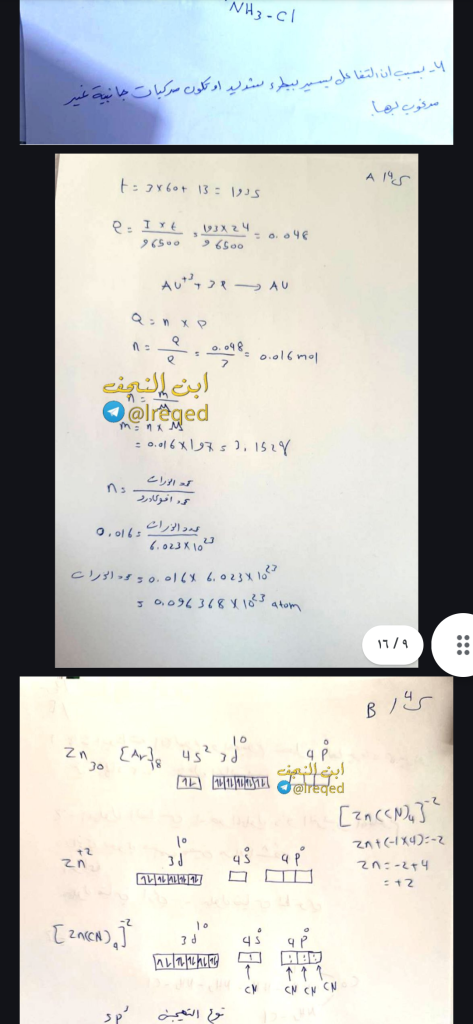 NH3-Cl
٧- بسبب ان التفاعل يسير ببطء شديد او تكون مركبات جانبية غير
مرغوب بها.
A س14
t = 3x60+ 13 = 193s
Q = I x t / 96500 = 193x24 / 96500 = 0.048
AU+3 + 3e → AU
Q = n x e
n = Q / e = 0.048 / 3 = 0.016 mol
ابن النجف
@Ireqed
n = m / M
m = n x M
= 0.016 x 197 = 3.152g
n = عدد الذرات / عدد افوكادرو
0.016 = عدد الذرات / 6.023x10^23
عدد الذرات = 0.016 x 6.023x10^23
= 0.096368 x10^23 atom
١٦ / ٩
B / س4
Zn30 [Ar]18 4s2 3d10 4p0
ابن النجف
@Ireqed
[Zn(CN)4]-2
Zn+(-1x4)=-2
Zn = -2+4
= +2
Zn+2 3d10 4s0 4p0
[Zn(CN)4]-2 3d10 4s0 4p0
CN CN CN CN
نوع التهجين sp3